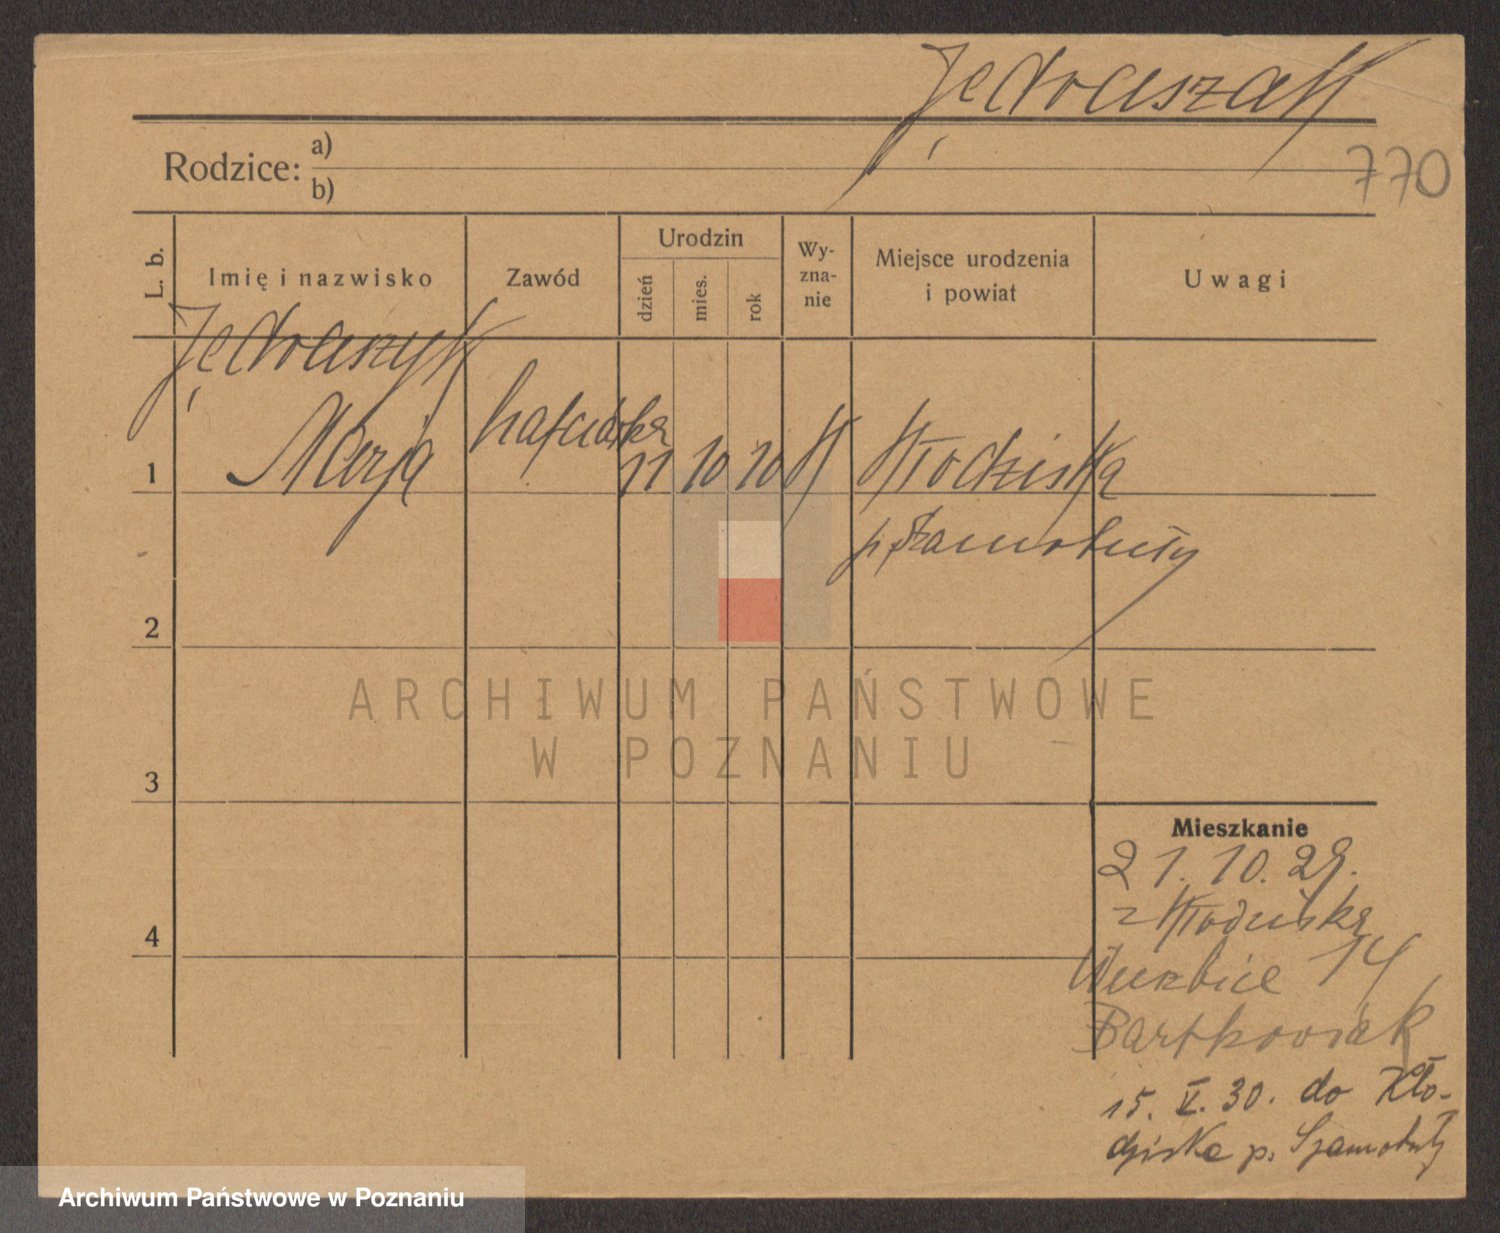 Jędraszak
Rodzice: a)
b)
770
L. b.
Imię i nazwisko
Zawód
Urodzin
dzień
mies.
rok
Wy-
zna-
nie
Miejsce urodzenia
i powiat
Uwagi
Jędraszyk
1 Marja hafciarka 11 10 10 K Kłodziska
p. Szamotuły
2
ARCHIWUM PAŃSTWOWE
W POZNANIU
3
Mieszkanie
21. 10. 29.
z Kłodziska
4
14
Bartkowiak
15. V. 30. do Kło-
dziska p. Szamotuły
Archiwum Państwowe w Poznaniu